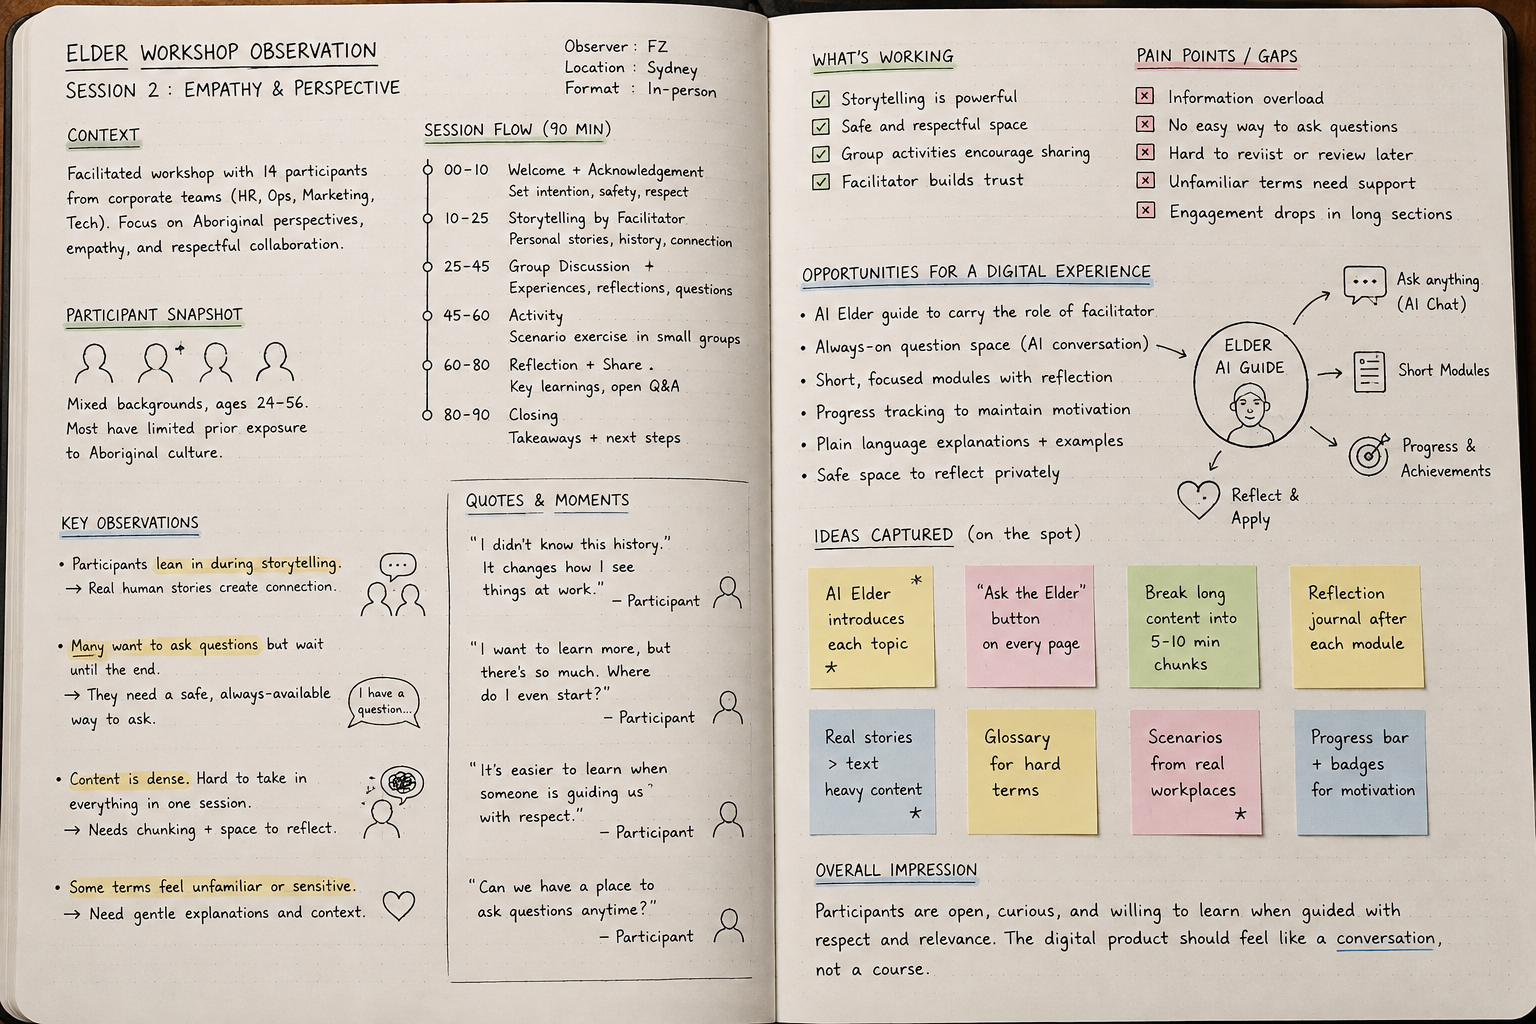 ELDER WORKSHOP OBSERVATION
SESSION 2 : EMPATHY & PERSPECTIVE
Observer : FZ
Location : Sydney
Format : In-person
CONTEXT
Facilitated workshop with 14 participants
from corporate teams (HR, Ops, Marketing,
Tech). Focus on Aboriginal perspectives,
empathy, and respectful collaboration.
PARTICIPANT SNAPSHOT
Mixed backgrounds, ages 24-56.
Most have limited prior exposure
to Aboriginal culture.
SESSION FLOW (90 MIN)
00-10 Welcome + Acknowledgement
Set intention, safety, respect
10-25 Storytelling by Facilitator
Personal stories, history, connection
25-45 Group Discussion +
Experiences, reflections, questions
45-60 Activity
Scenario exercise in small groups
60-80 Reflection + Share .
Key learnings, open Q&A
80-90 Closing
Takeaways + next steps
KEY OBSERVATIONS
• Participants lean in during storytelling.
→ Real human stories create connection.
• Many want to ask questions but wait
until the end.
→ They need a safe, always-available
way to ask.
I have a
question...
• Content is dense. Hard to take in
everything in one session.
→ Needs chunking + space to reflect.
• Some terms feel unfamiliar or sensitive.
→ Need gentle explanations and context.
QUOTES & MOMENTS
"I didn't know this history."
It changes how I see
things at work."
– Participant
"I want to learn more, but
there's so much. Where
do I even start?"
– Participant
"It's easier to learn when
someone is guiding us
with respect."
– Participant
"Can we have a place to
ask questions anytime?"
– Participant
WHAT'S WORKING
Storytelling is powerful
Safe and respectful space
Group activities encourage sharing
Facilitator builds trust
PAIN POINTS / GAPS
Information overload
No easy way to ask questions
Hard to reviist or review later
Unfamiliar terms need support
Engagement drops in long sections
OPPORTUNITIES FOR A DIGITAL EXPERIENCE
• AI Elder guide to carry the role of facilitator
• Always-on question space (AI conversation)
• Short, focused modules with reflection
• Progress tracking to maintain motivation
• Plain language explanations + examples
• Safe space to reflect privately
ELDER
AI GUIDE
Ask anything
(AI Chat)
Short Modules
Progress &
Achievements
Reflect &
Apply
IDEAS CAPTURED (on the spot)
AI Elder *
introduces
each topic
*
"Ask the Elder"
button
on every page
Break long
content into
5-10 min
chunks
Reflection
journal after
each module
Real stories
> text
heavy content
*
Glossary
for hard
terms
Scenarios
from real
workplaces
*
Progress bar
+ badges
for motivation
OVERALL IMPRESSION
Participants are open, curious, and willing to learn when guided with
respect and relevance. The digital product should feel like a conversation,
not a course.